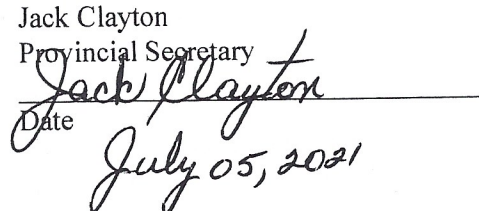 Jack Clayton
Provincial Secretary
Jack Clayton
Date
July 05, 2021